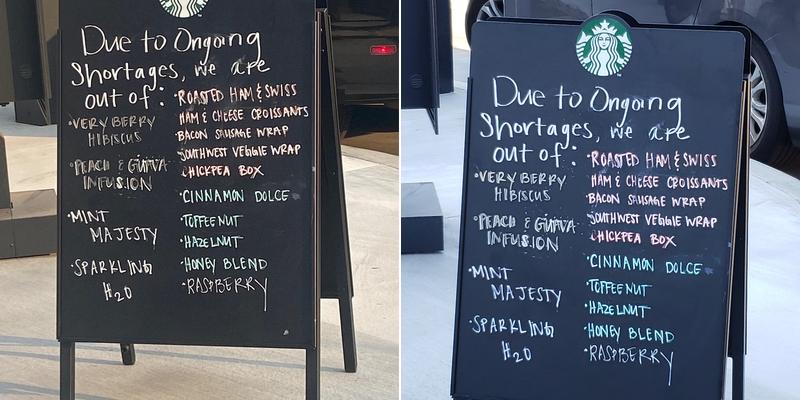 Due to Ongoing
Shortages, we are
out of:
•VERY BERRY
HIBISCUS
•PEACH & GUAVA
INFUSION
•MINT
MAJESTY
•SPARKLING
H2O
•ROASTED HAM & SWISS
HAM & CHEESE CROISSANTS
BACON SAUSAGE WRAP
SOUTHWEST VEGGIE WRAP
CHICKPEA BOX
•CINNAMON DOLCE
•TOFFEENUT
•HAZELNUT
•HONEY BLEND
•RASPBERRY
Due to Ongoing
Shortages, we are
out of:
•VERY BERRY
HIBISCUS
•PEACH & GUAVA
INFUSION
•MINT
MAJESTY
•SPARKLING
H2O
•ROASTED HAM & SWISS
HAM & CHEESE CROISSANTS
BACON SAUSAGE WRAP
SOUTHWEST VEGGIE WRAP
CHICKPEA BOX
•CINNAMON DOLCE
•TOFFEENUT
•HAZELNUT
•HONEY BLEND
•RASPBERRY